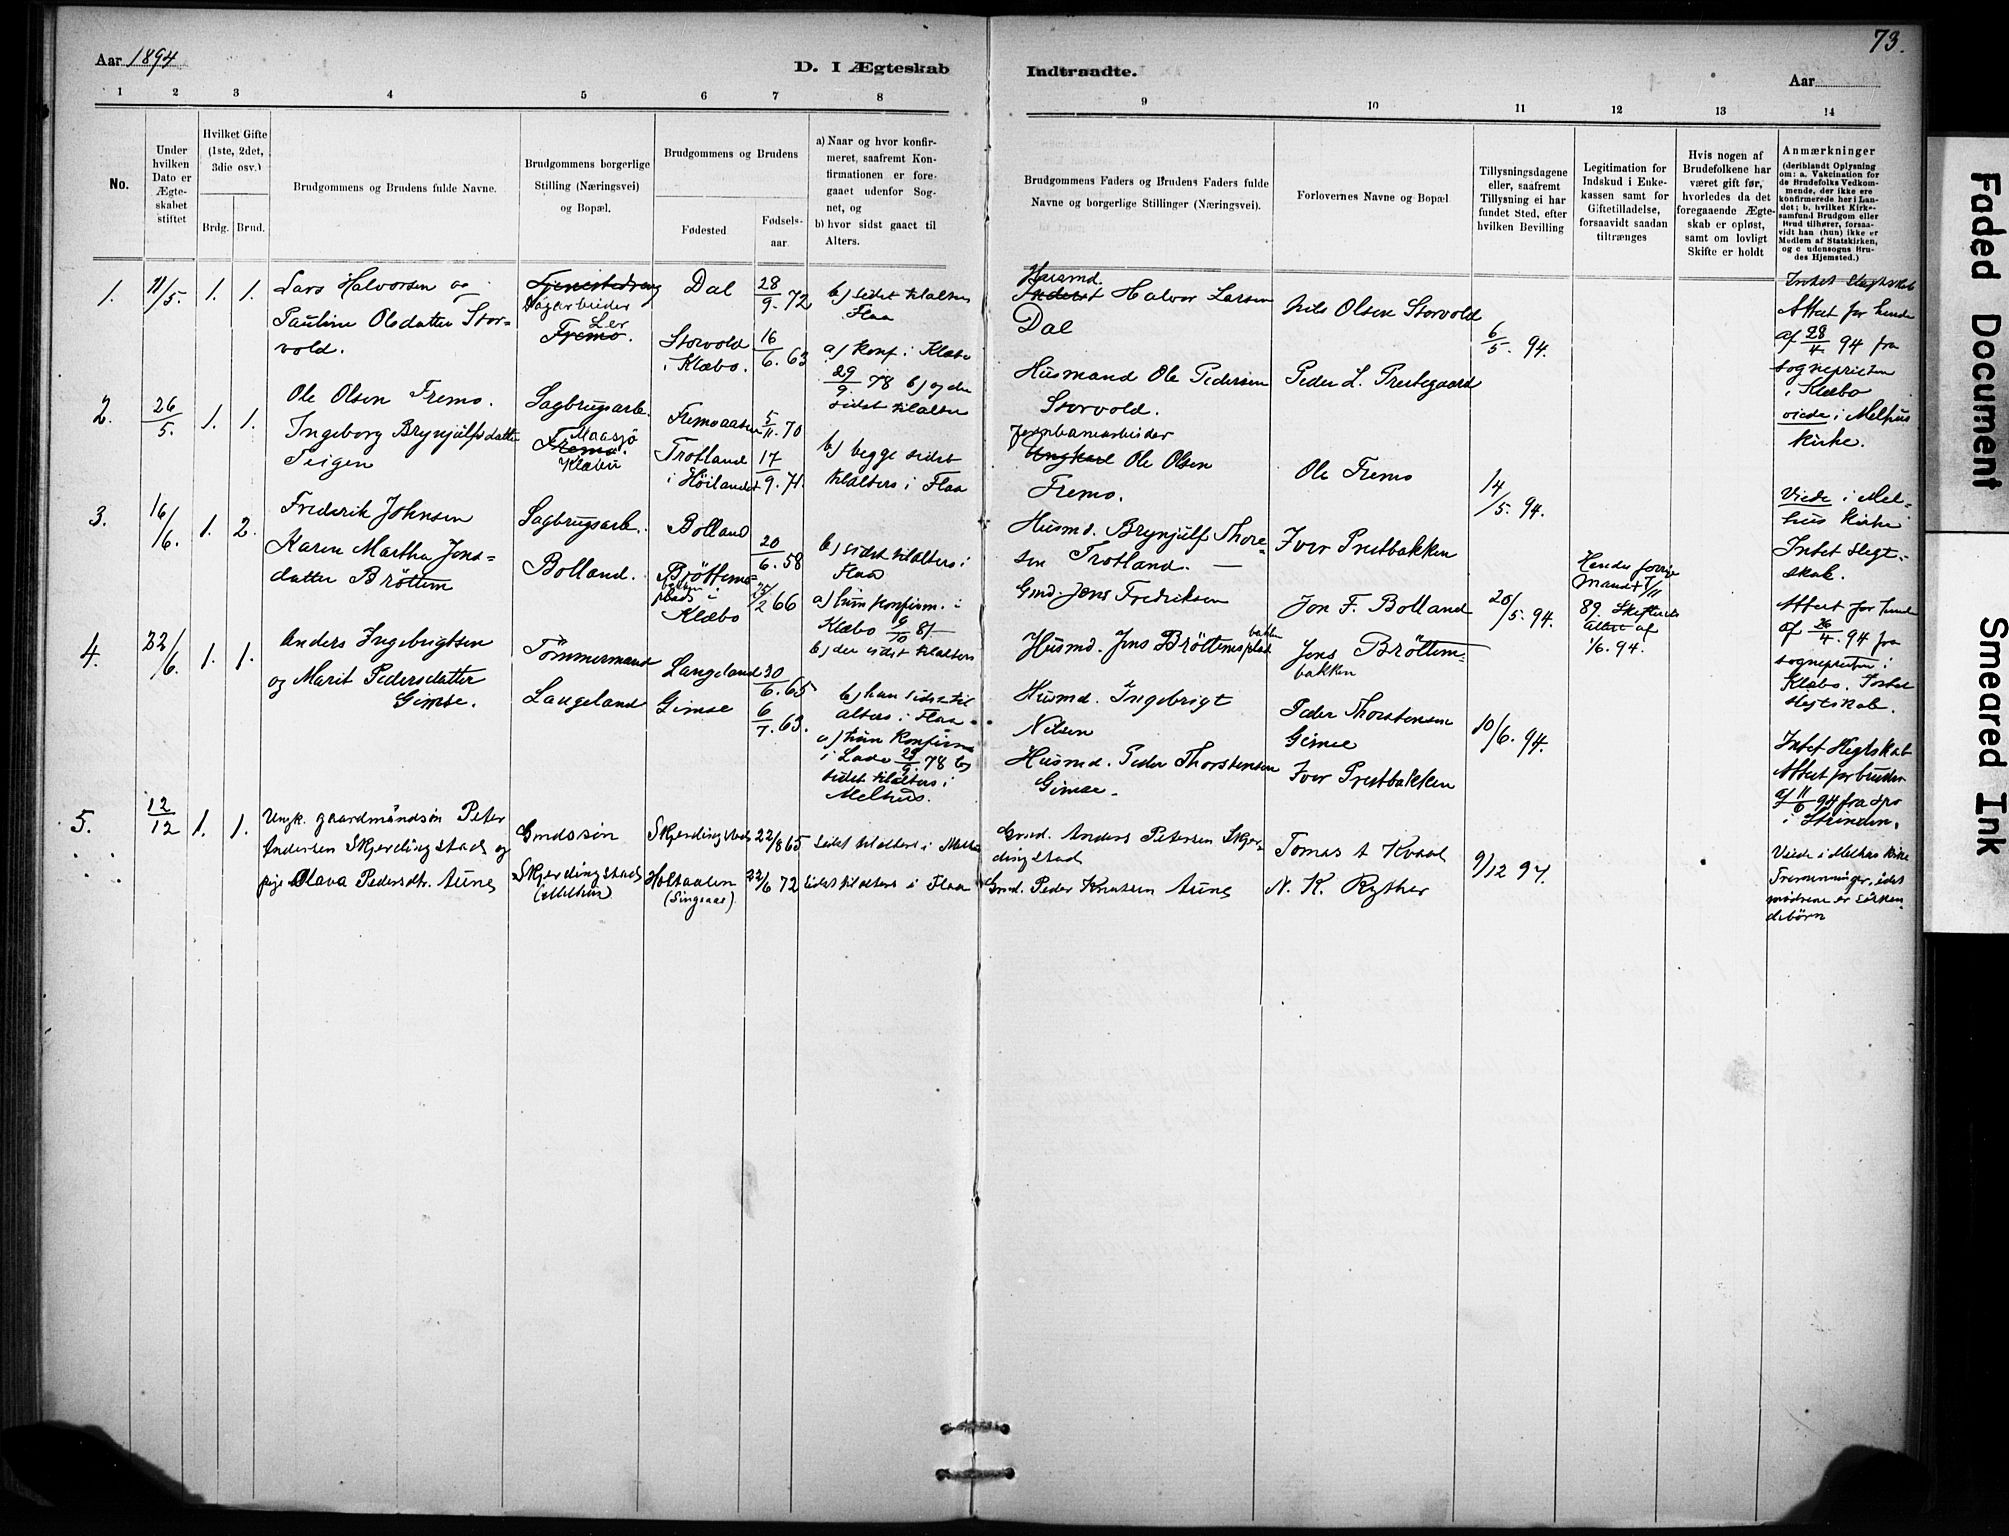 73.
Aar 1894
D. I Ægteskab
Indtraadte.
Aar
1 2 3 4 5 6 7 8
9 10 11 12 13 14
No.
Under hvilken Dato er Ægte-skabet stiftet
Hvilket Gifte (1ste, 2det, 3die osv.)
Brdg. Brud.
Brudgommens og Brudens fulde Navne.
Brudgommens borgerlige Stilling (Næringsvei) og Bopæl.
Brudgommens og Brudens
Fødested
Fødsels-aar
a) Naar og hvor konfir-meret, saafremt Kon-firmationen er fore-gaaet udenfor Sog-net, og
b) hvor sidst gaaet til Alters.
Brudgommens Faders og Brudens Faders fulde Navne og borgerlige Stillinger (Næringsvei).
Forlovernes Navne og Bopæl
Tillysningsdagene eller, saafremt Tillysning ei har fundet Sted, efter hvilken Bevilling
Legitimation for Indskud i Enke-kassen samt for Giftetilladelse, forsaavidt saadan tiltrænges
Hvis nogen af Brudefolkene har været gift før, hvorledes da det foregaaende Ægte-skab er opløst, samt om lovligt Skifte er holdt
Anmærkninger
(deriblandt Oplysning om: a. Vakcination for de Brudefolks Vedkom-mende, der ikke ere konfirmerede her i Lan-det; b. hvilket Kirke-samfund Brudgom eller Brud tilhører, forsaa-vidt han (hun) ikke er Medlem af Statskirken, og c udensogns Bru-des Hjemsted.)
1. 11/5. 1. 1.
Lars Halvorsen og
Pauline Olsdatter Stor-
vold.
Tjenestedreng
Dagarbeider
Ler
Fremo.
Dal
Storvold
i Klæbo.
28/9. 72
16/6. 63
b) sidst tilalters
Flaa
a) konf. i Klæbo
29/9. 78 b) og der
sidst tilalters
Husmd.
Inderst Halvor Larsen
Dal
Husmand Ole Pedersen
Storvold.
Nils Olsen Storvold
Peder L. Prestegaard
6/5. 94.
Intet Slegtskab
Attest for hende
af 28/4. 94 fra
sognepresten
i Klæbo
viede i Melhus
kirke.
2. 26/5. 1. 1.
Ole Olsen Fremo.
Ingeborg Brynjulfsdatter
Teigen
Sagbrugsarb.
Maasjø
Fremo.
Klæbu
Fremoaasen
Trotland
i Höilandet
5/11. 70
17/9. 71.
b) begge sidst
tilalters i Flaa
Jernbanearbeider
Ungkarl Ole Olsen
Fremo.
Husmd. Brynjulf Thore-
sen Trotland.
Ole Fremo
Iver Prestbakken
14/5. 94.
Viede i Mel-
hus kirke
Intet slegt-
skab.
3. 16/6. 1. 2.
Frederik Johnsen
Karen Martha Jens-
datter Bröttem
Sagbrugsarb.
Bolland.
Bolland
Bröttems-
bakken
plads i
Klæbo
20/6. 58
25/2 66
b) sidst tilalters i
Flaa
a) hun konfirm. i
Klæbo 9/10 81
b) der sidst tilalters
Gmd. Jens Fredriksen
Husmd. Jens Bröttemsplad
bakken
Jon F. Bolland
Jens Bröttem-
bakken
20/5. 94.
Hendes forrige
Mand † 7/11
89. Skifteretts
attest af
1/6. 94.
Attest for hende
af 26/4. 94 fra
sognepresten i
Klæbo. Intet
slegtskab.
4. 22/6. 1. 1.
Anders Ingebrigtsen
og Marit Pedersdatter
Gimse.
Tömmermand
Langeland
Langeland
Gimse
30/6. 65
6/7. 63.
b) han sidst til
alters i Flaa
a) hun konfirm
i Lade 29/9. 78 b)
sidst tilalters i
Melhus.
Husmd. Ingebrigt
Nilsen
Husmd. Peder Thorstensen
Gimse.
Peder Thorstensen
Gimse
Iver Prestbakken
10/6. 94.
Intet slegtskab
Attest for bruden
af 11/6 94 fra spr
i Strinden.
5. 12/12 1. 1.
Ungk. gaardmandsøn Peter
Andersen Skjerdingstad og
pige Olava Pedersdtr. Aune
Gmdssön
Skjerdingstad
(Melhus)
Skjerdingstad
Holtaalen
(Singsaas)
22/8 65
22/6 72
sidst tilalters i Melhus
sidst tilalters i Flaa
Gmd. Anders Petersen Skjer-
dingstad
Gmd. Peder Knutsen Aune
Tomas A Kvaal
N. K. Ryther
9/12 94.
Viede i Melhus kirke
Tremenninger, idet
mödrene er sösken-
debörn
Faded Document
Smeared Ink